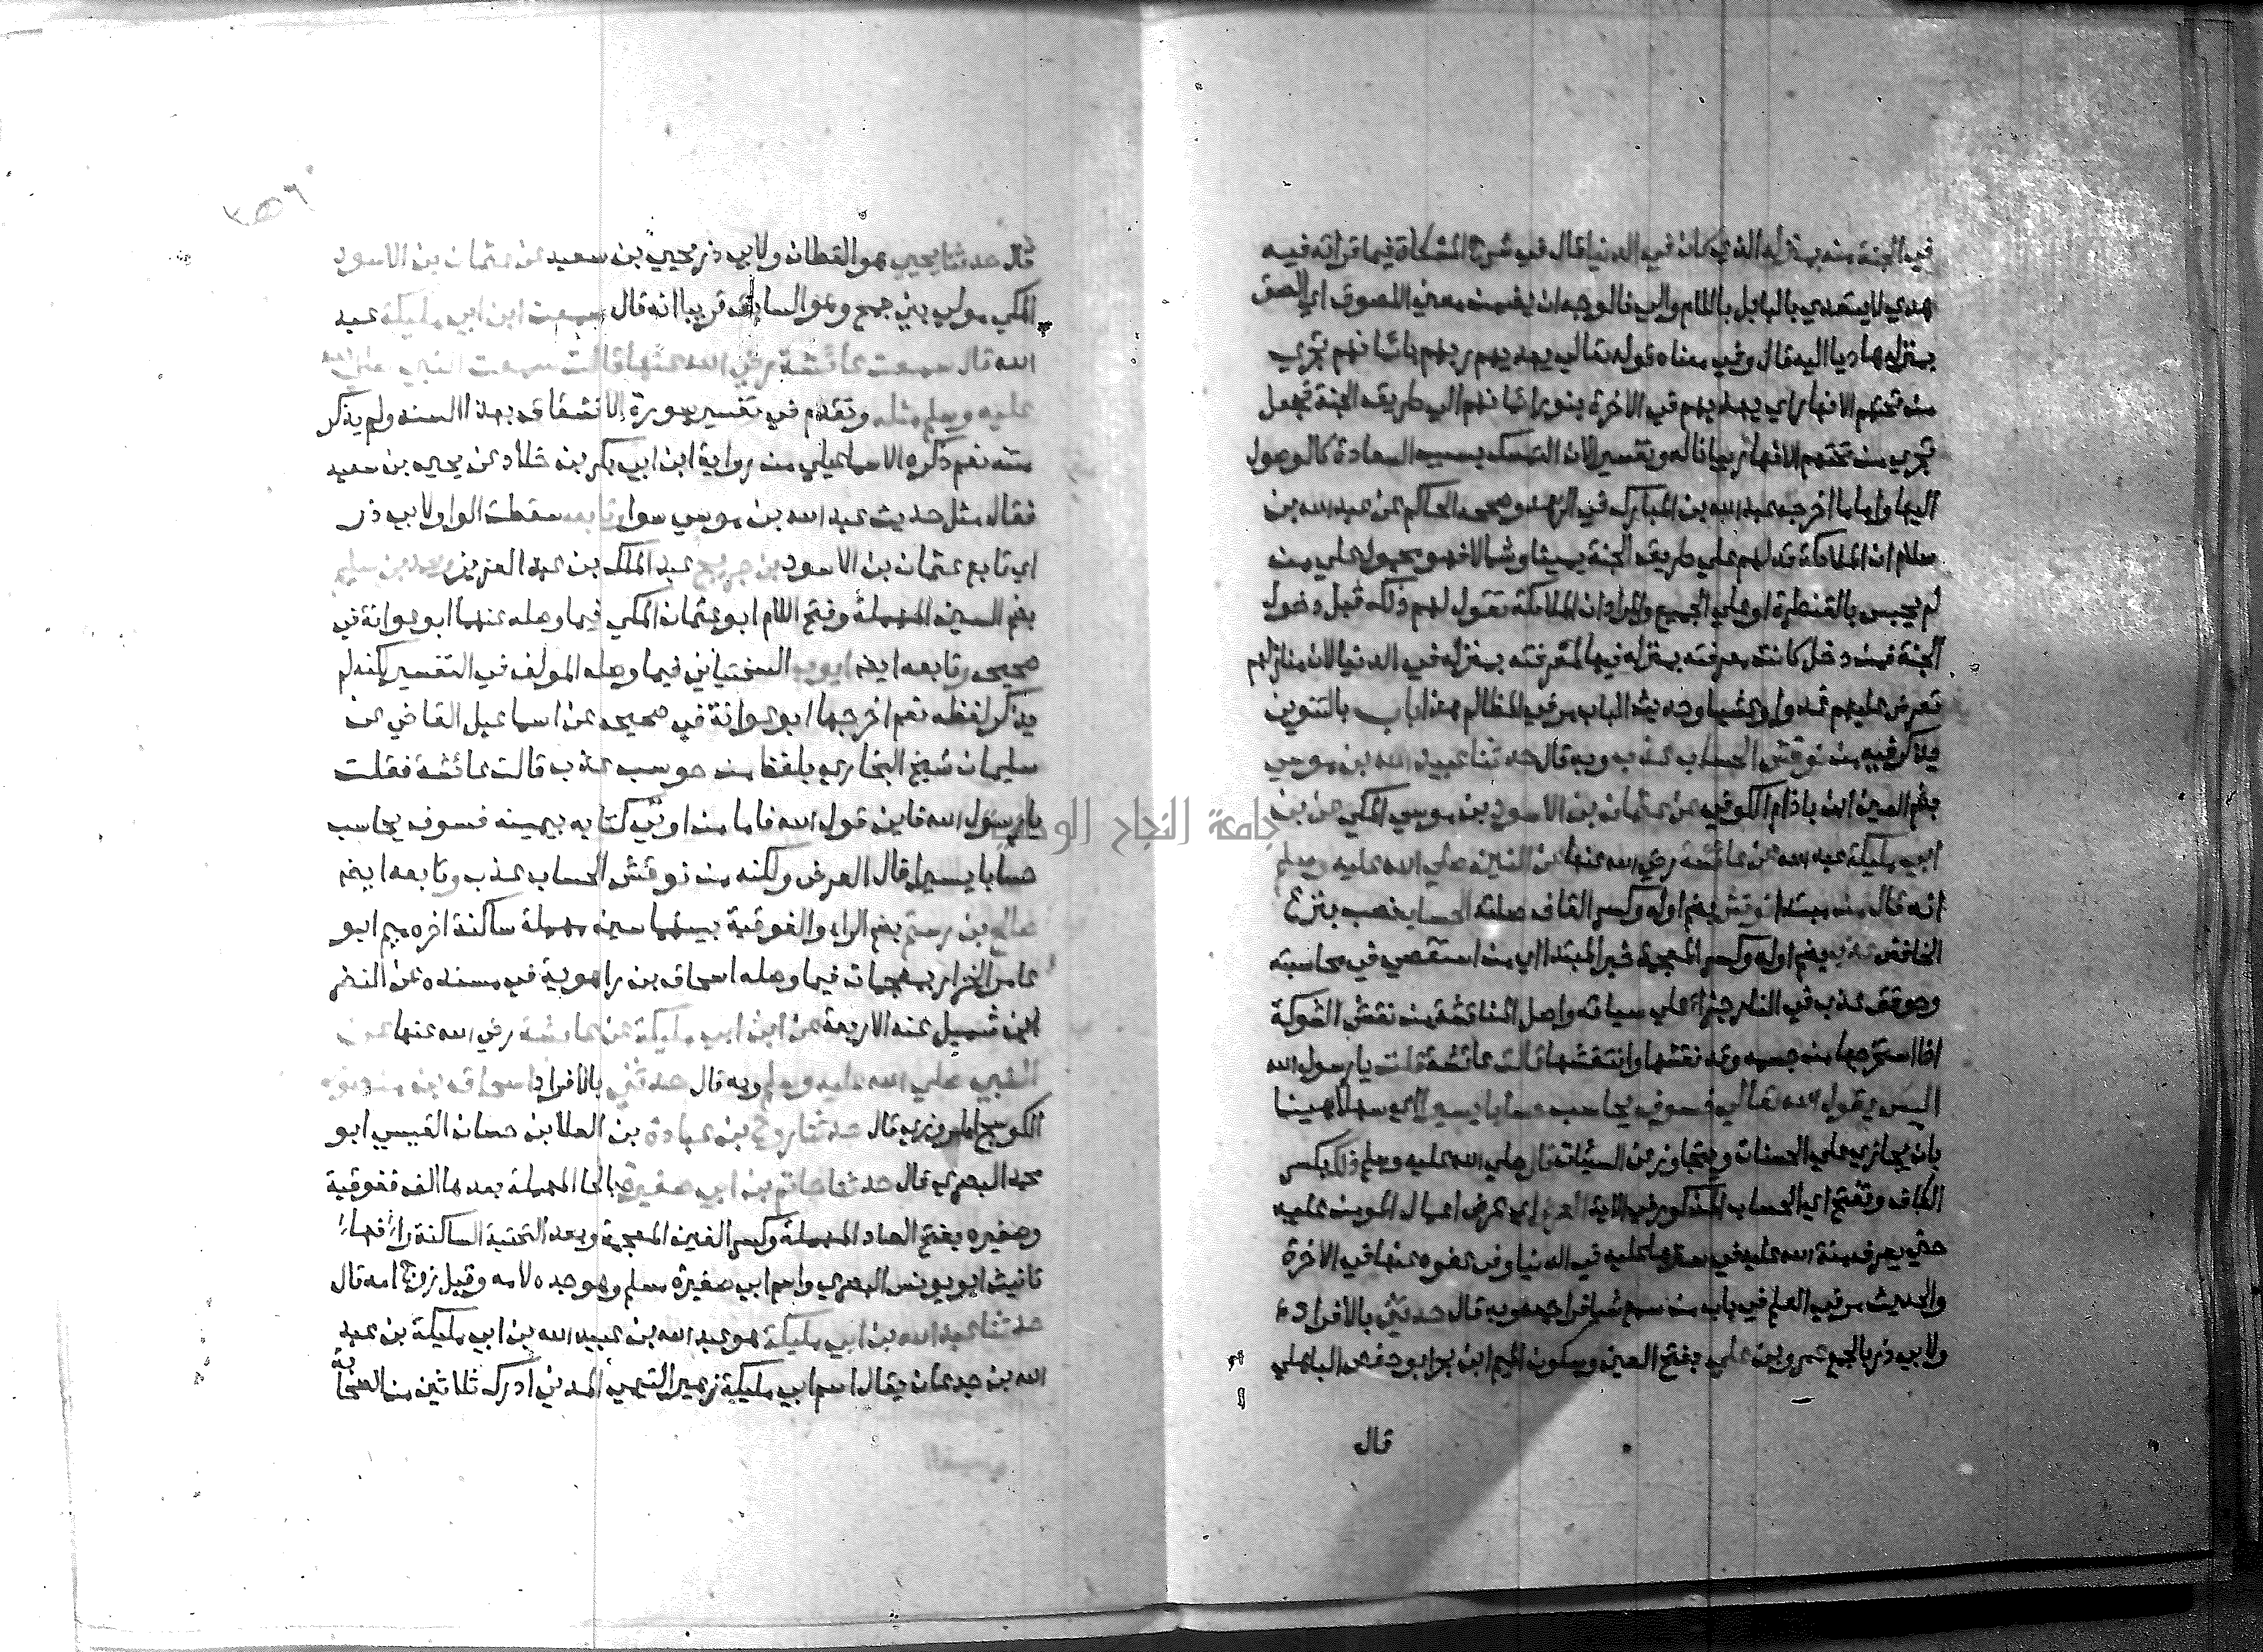 في الجنة منه بمنزله الذي كان في الدنيا قال في شرح المشكاة فيما قراته فيه
هدي لا يتعدي بالبا بل باللام والي فالوجه ان يضمن معني اللصوق اي الصق
بمنزله هاديا اليه قال وفي معناه قوله تعالي يهديهم ربهم بايمانهم تجري
من تحتهم الانهار اي يهديهم في الاخرة بنور ايمانهم الي طريق الجنة فجعل
تجري من تحتهم الانهار بيانا له وتفسيرا لان التمسك بسبب السعادة كالوصول
اليها واما ما اخرجه عبد الله بن المبارك في الزهد وصححه الحاكم عن عبد الله بن
سلام ان الملائكة تدلهم علي طريق الجنة يمينا وشمالا فهو محمول علي من
لم يحبس بالقنطرة او علي الجميع والمراد ان الملائكة تقول لهم ذلك قبل دخول
الجنة فمن دخل كانت معرفته بمنزله فيها كمعرفته بمنزله في الدنيا لان منازلهم
تعرض عليهم غدوا وعشيا وحديث الباب مر في المظالم هذا باب بالتنوين
يذكر فيه من نوقش الحساب عذب وبه قال حدثنا عبيد الله بن موسي
بضم العين ابن باذام الكوفي عن عثمان بن الاسود بن موسي المكي عن بن
ابي مليكة عبد الله عن عائشة رضي الله عنها عن النبي صلي الله عليه وسلم
انه قال من مبتدا نوقش بضم اوله وكسر القاف صلته الحساب نصب بنزع
الخافض عذب بضم اوله وكسر المعجمة خبر المبتدا اي من استقصي في محاسبته
وحوقق عذب في النار جزاء علي سياته واصل المناقشة من نقش الشوكة
اذا استخرجها من جسمه وقد نقشها وانتقشها قالت عائشة قلت يا رسول الله
اليس يقول الله تعالي فسوف يحاسب حسابا يسيرا اي سهلا هينا
بان يجازي علي الحسنات ويتجاوز عن السيئات قال صلي الله عليه وسلم ذلك بكسر
الكاف وتفتح اي الحساب المذكور في الاية العرض اي عرض اعمال المومن عليه
حتي يعرف منة الله عليه في سترها عليه في الدنيا وفي عفوه عنها في الاخرة
والحديث مر في العلم في باب من سمع شيا فراجعه وبه قال حدثني بالافراد
ولابي ذر بالجمع عمرو بن علي بفتح العين وسكون الميم ابن بحر ابو حفص الباهلي
قال
قال حدثنا يحيي هو القطان ولابي ذر يحيي بن سعيد عن عثمان بن الاسود
المكي مولي بني جمح وهو السابق قريبا انه قال سمعت ابن ابي مليكة عبد
الله قال سمعت عائشة رضي الله عنها قالت سمعت النبي صلي الله
عليه وسلم مثله وتقدم في تفسير سورة الانشقاق بهذا السند ولم يذكر
متنه نعم ذكره الاسماعيلي من رواية ابن ابي بكر بن خلاد عن يحيي بن سعيد
فقال مثل حديث عبد الله بن موسي سوا وتابعه سقطت الواو لابي ذر
اي تابع عثمان بن الاسود بن جريج عبد الملك بن عبد العزيز ومحمد بن سليم
بضم السين المهملة وفتح اللام ابو عثمان المكي فيما وصله عنهما ابو عوانة في
صحيحه وتابعه ايضا ايوب السختياني فيما وصله المولف في التفسير لكنه لم
يذكر لفظه نعم اخرجها ابو عوانة في صحيحه عن اسماعيل القاضي عن
سليمان شيخ البخاري بلفظ من حوسب عذب قالت عائشة فقلت
يا رسول الله فاين قول الله فاما من اوتي كتابه بيمينه فسوف يحاسب
حسابا يسيرا قال العرض ولكنه من نوقش الحساب عذب وتابعه ايضا
صالح بن رستم بضم الراء والفوقية بينهما سين مهملة ساكنة اخره ميم ابو
عامر الخزاز بمعجمات فيما وصله اسحاق بن راهوية في مسنده عن النضر
ابن شميل عنه الاربعة عن ابن ابي مليكة عن عائشة رضي الله عنها عن
النبي صلي الله عليه وسلم وبه قال حدثني بالافراد اسحاق بن منصور
الكوسج المروزي قال حدثنا روح بن عبادة بن العلا بن حسان القيسي ابو
محمد البصري قال حدثنا حاتم بن ابي صغيرة بالحا المهملة بعدها الف ففوقية
وصغيره بفتح الصاد المهملة وكسر الغين المعجمة وبعد التحتية الساكنة راء فهاء
تانيث ابو يونس البصري واسم ابي صغيرة مسلم وهو جده لامه وقيل زوج امه قال
حدثنا عبد الله بن ابي مليكة هو عبد الله بن عبيد الله بن ابي مليكة بن عبد
الله بن جدعان يقال اسم ابي مليكة زهير التيمي المدني ادرك ثلاثين من الصحابة
جامعة النجاح الوطنية